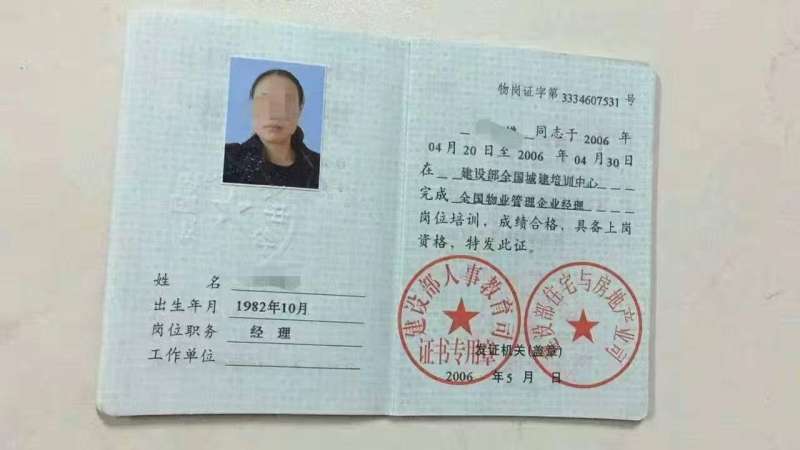 姓 名
出生年月 1982年10月
岗位职务 经 理
工作单位
物岗证字第 3334607531 号
同志于 2006 年
04 月 20 日至 2006 年 04 月 30 日
在 建设部全国城建培训中心
完成 全国物业管理企业经理
岗位培训，成绩合格，具备上岗
资格，特发此证。
建设部人事教育司
证书专用章
建设部住宅与房地产业司
发证机关(盖章)
2006 年 5 月 日